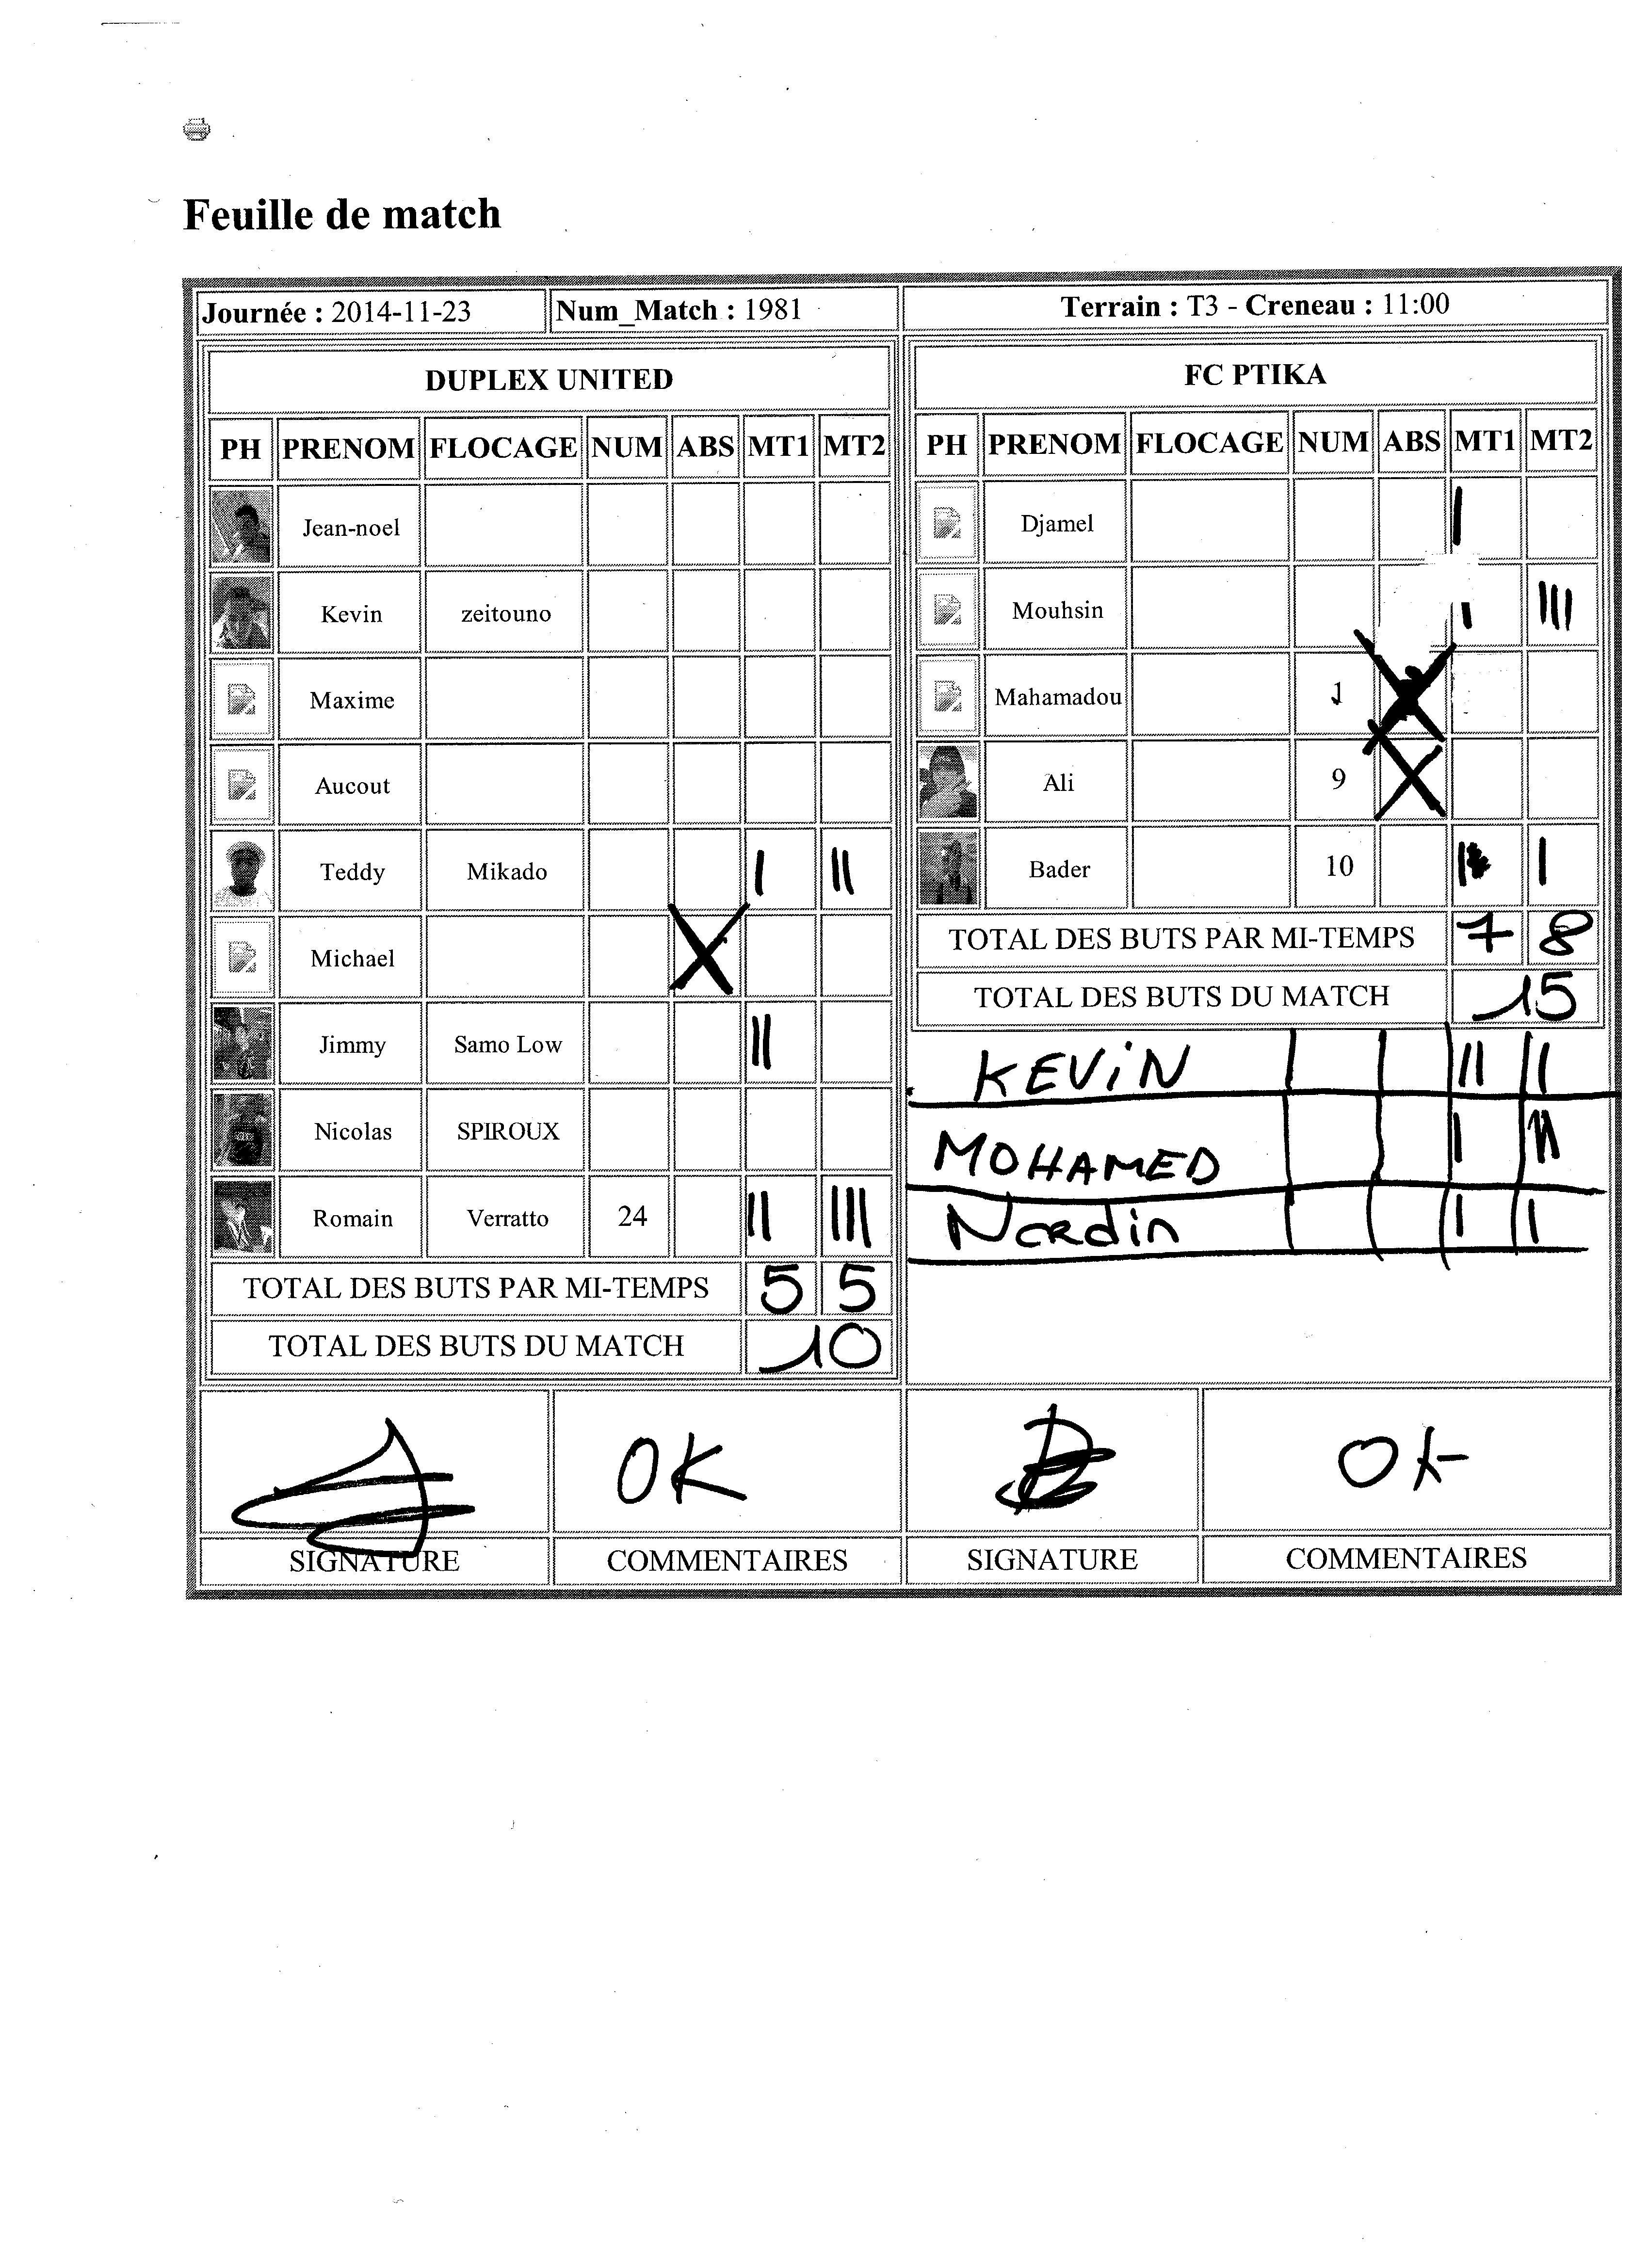 Feuille de match
Journée : 2014-11-23 Num_Match : 1981 Terrain : T3 - Creneau : 11:00
DUPLEX UNITED
PH PRENOM FLOCAGE NUM ABS MT1 MT2
Jean-noel
Kevin zeitouno
Maxime
Aucout
Teddy Mikado I II
Michael X
Jimmy Samo Low II
Nicolas SPIROUX
Romain Verratto 24 II III
TOTAL DES BUTS PAR MI-TEMPS 5 5
TOTAL DES BUTS DU MATCH 10
OK
SIGNATURE COMMENTAIRES
FC PTIKA
PH PRENOM FLOCAGE NUM ABS MT1 MT2
Djamel I
Mouhsin I III
Mahamadou 1 X
Ali 9 X
Bader 10 I I
TOTAL DES BUTS PAR MI-TEMPS 7 8
TOTAL DES BUTS DU MATCH 15
KEViN II II
MOHAMED I
Nordin I I
OK
SIGNATURE COMMENTAIRES